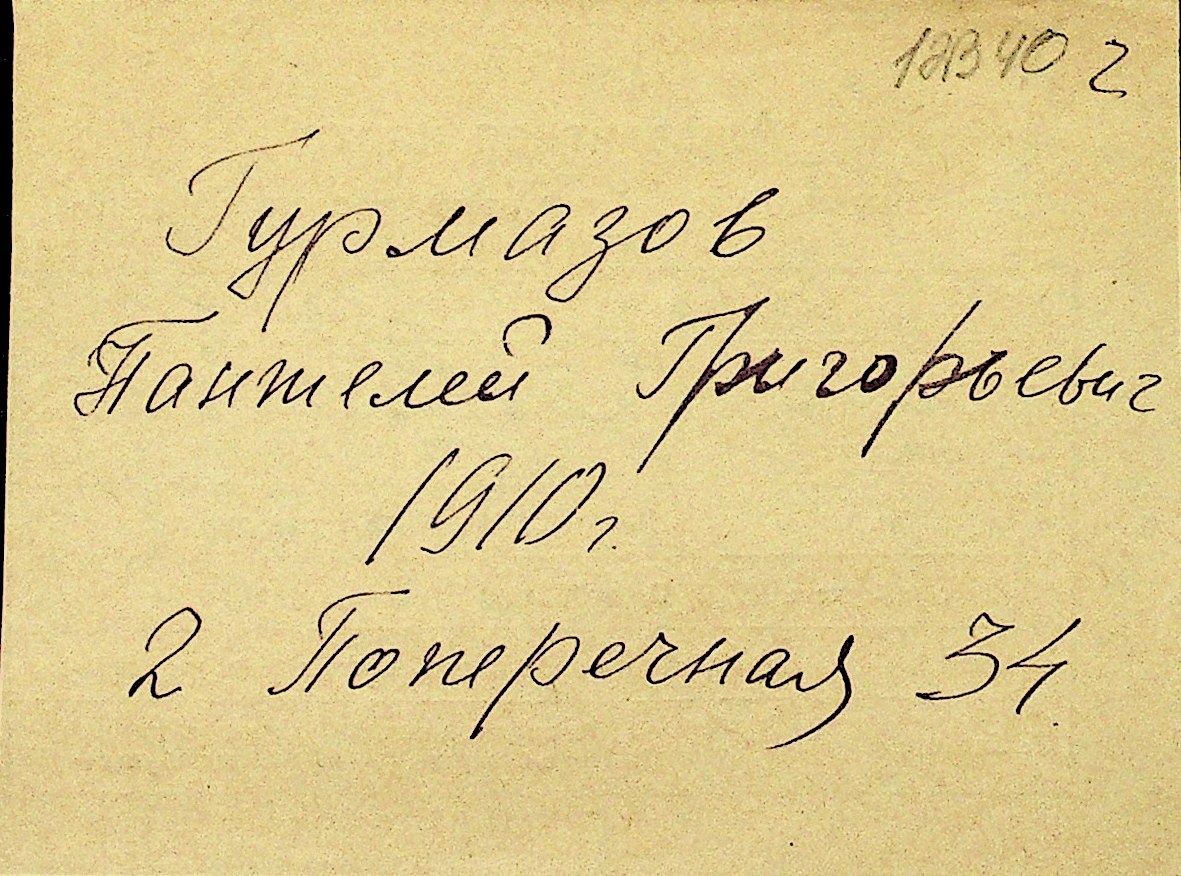 2
Гурмазов
Пантелей Григорьевич
1910 г.
2 Поперечная 34